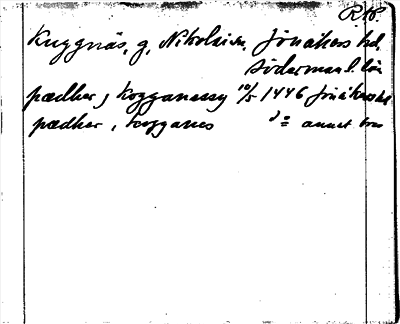 R.W.
Kuggnäs, g, Nikolai sn, Jönåkers hd
Söderman l. län
pædher j kogganessy 10/5 1446 Jönåkers hd
pædher, kogganes d:o annat brev